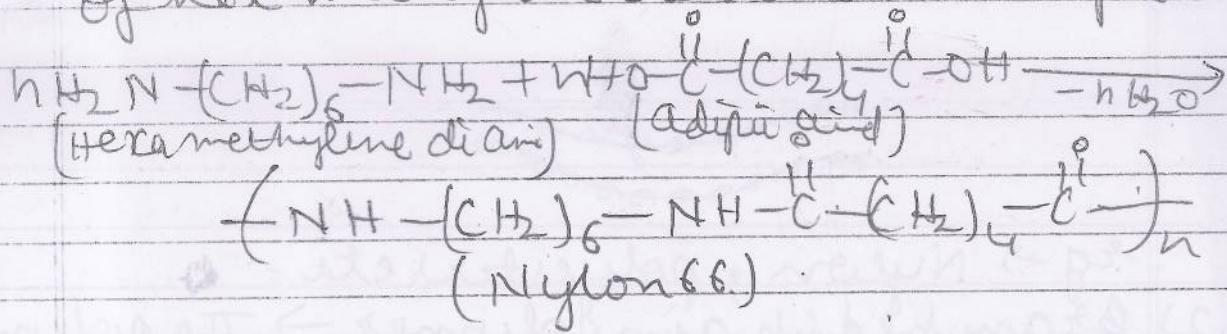 of Hex
O O
nH2N-(CH2)6-NH2 + nHO-C-(CH2)4-C-OH -nH2O
(Hexamethylene diami) (adipic acid)
O O
(NH-(CH2)6-NH-C-(CH2)4-C)n
(Nylon 66.)